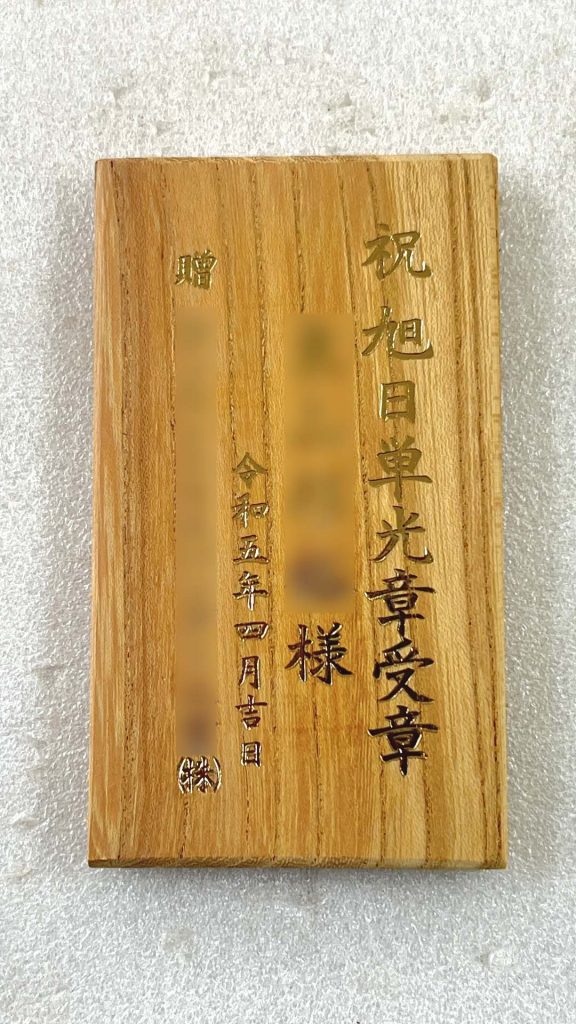 祝旭日単光章受章
様
令和五年四月吉日
贈
㈱